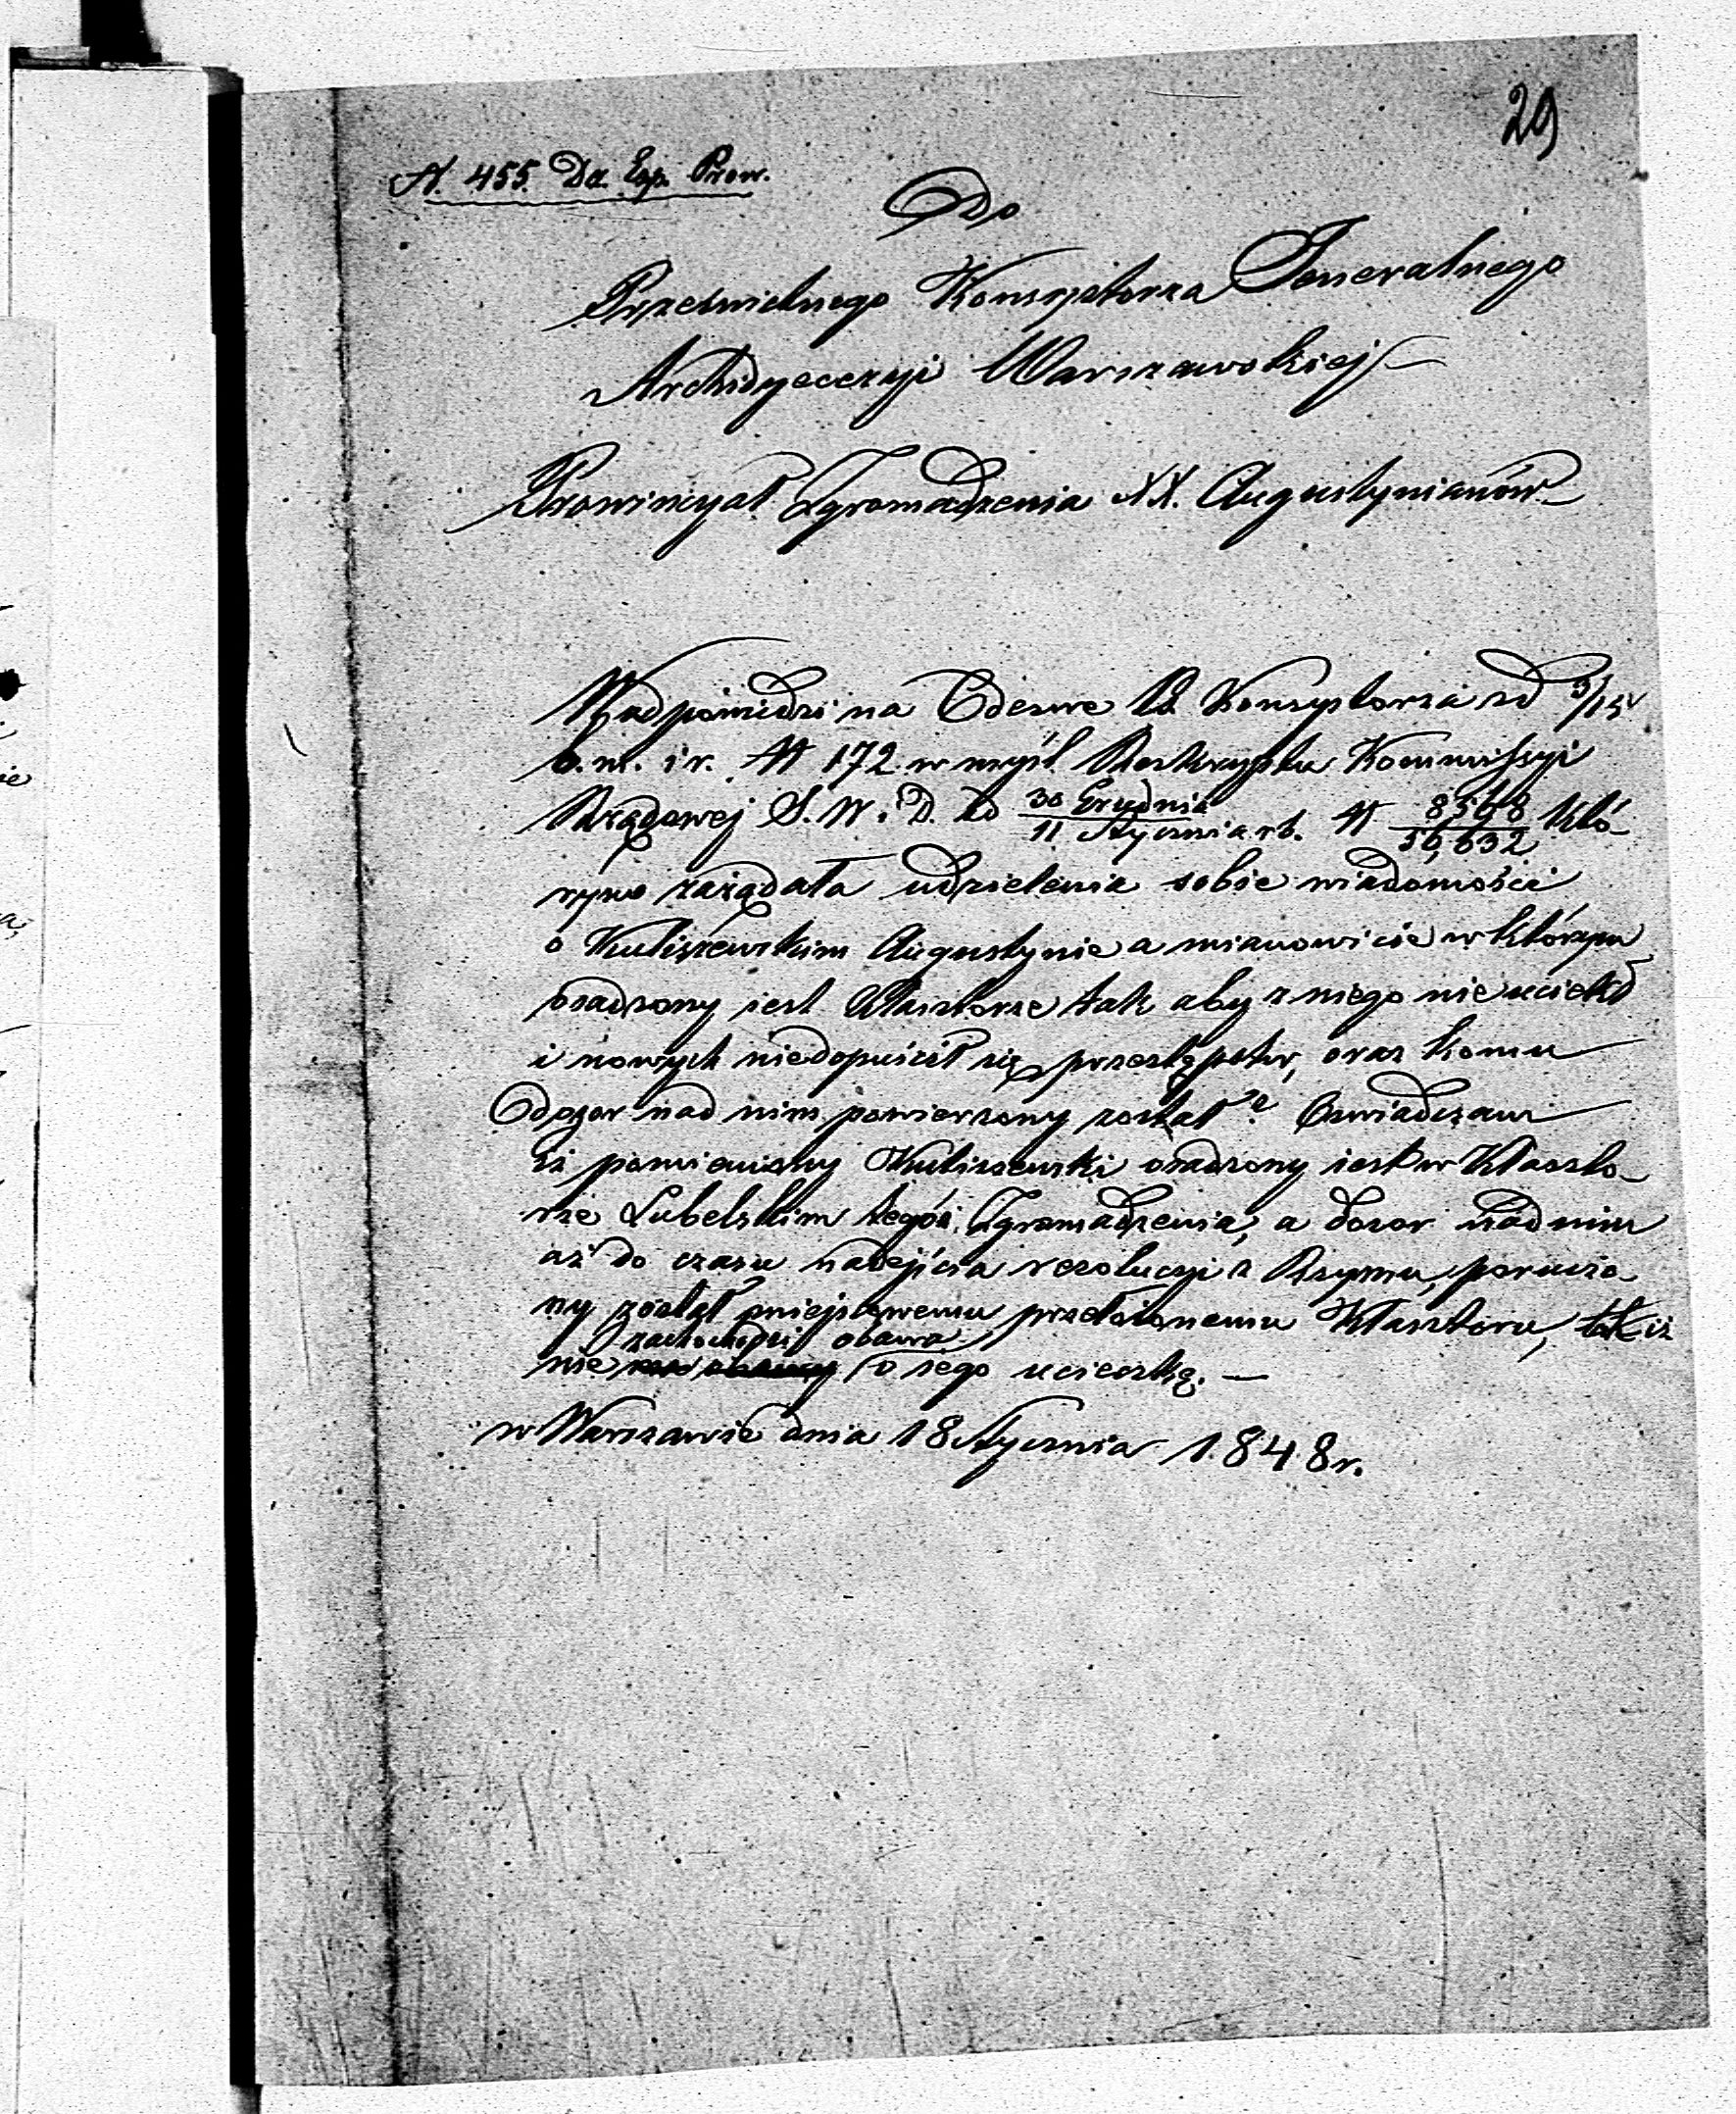 29
N. 455. Dz. Exp. Prow.
Do
Prześwietnego Konsystorza Jeneralnego
Archidyecezyi Warszawskiej
Prowincyał Zgromadzenia XX. Augustyianów
W odpowiedzi na Odezwę P. Konsystorza od 3/15
b. m. i r. N 172 w myśl Reskryptu Kommissyi
Rządowej S. W. i D. do 30 Grudnia / 11 Stycznia r b. N 8568 / 56,632 któ-
rym zażądała udzielenia sobie wiadomości
o Kuliszewskim Augustynie a mianowicie w którym
osadzony jest Klasztorze tak aby z niego nieuciekł
i nowych niedopuścił się przestępstw, oraz komu
Odozor nad nim powierzony został? Oświadczam
iż pomieniony Kuliszewski osadzony jest w Klaszto-
rze Lubelskim tegóż Zgromadzenia, a dozor nad nim
aż do czasu nadejścia rezolucyi z Rzymu, poruczo-
ny został miejscowemu przełożonemu Klasztoru, tak iż
zachodzi obawa
nie o jego ucieczkę. —
w Warszawie dnia 18 Stycznia 1848 r.